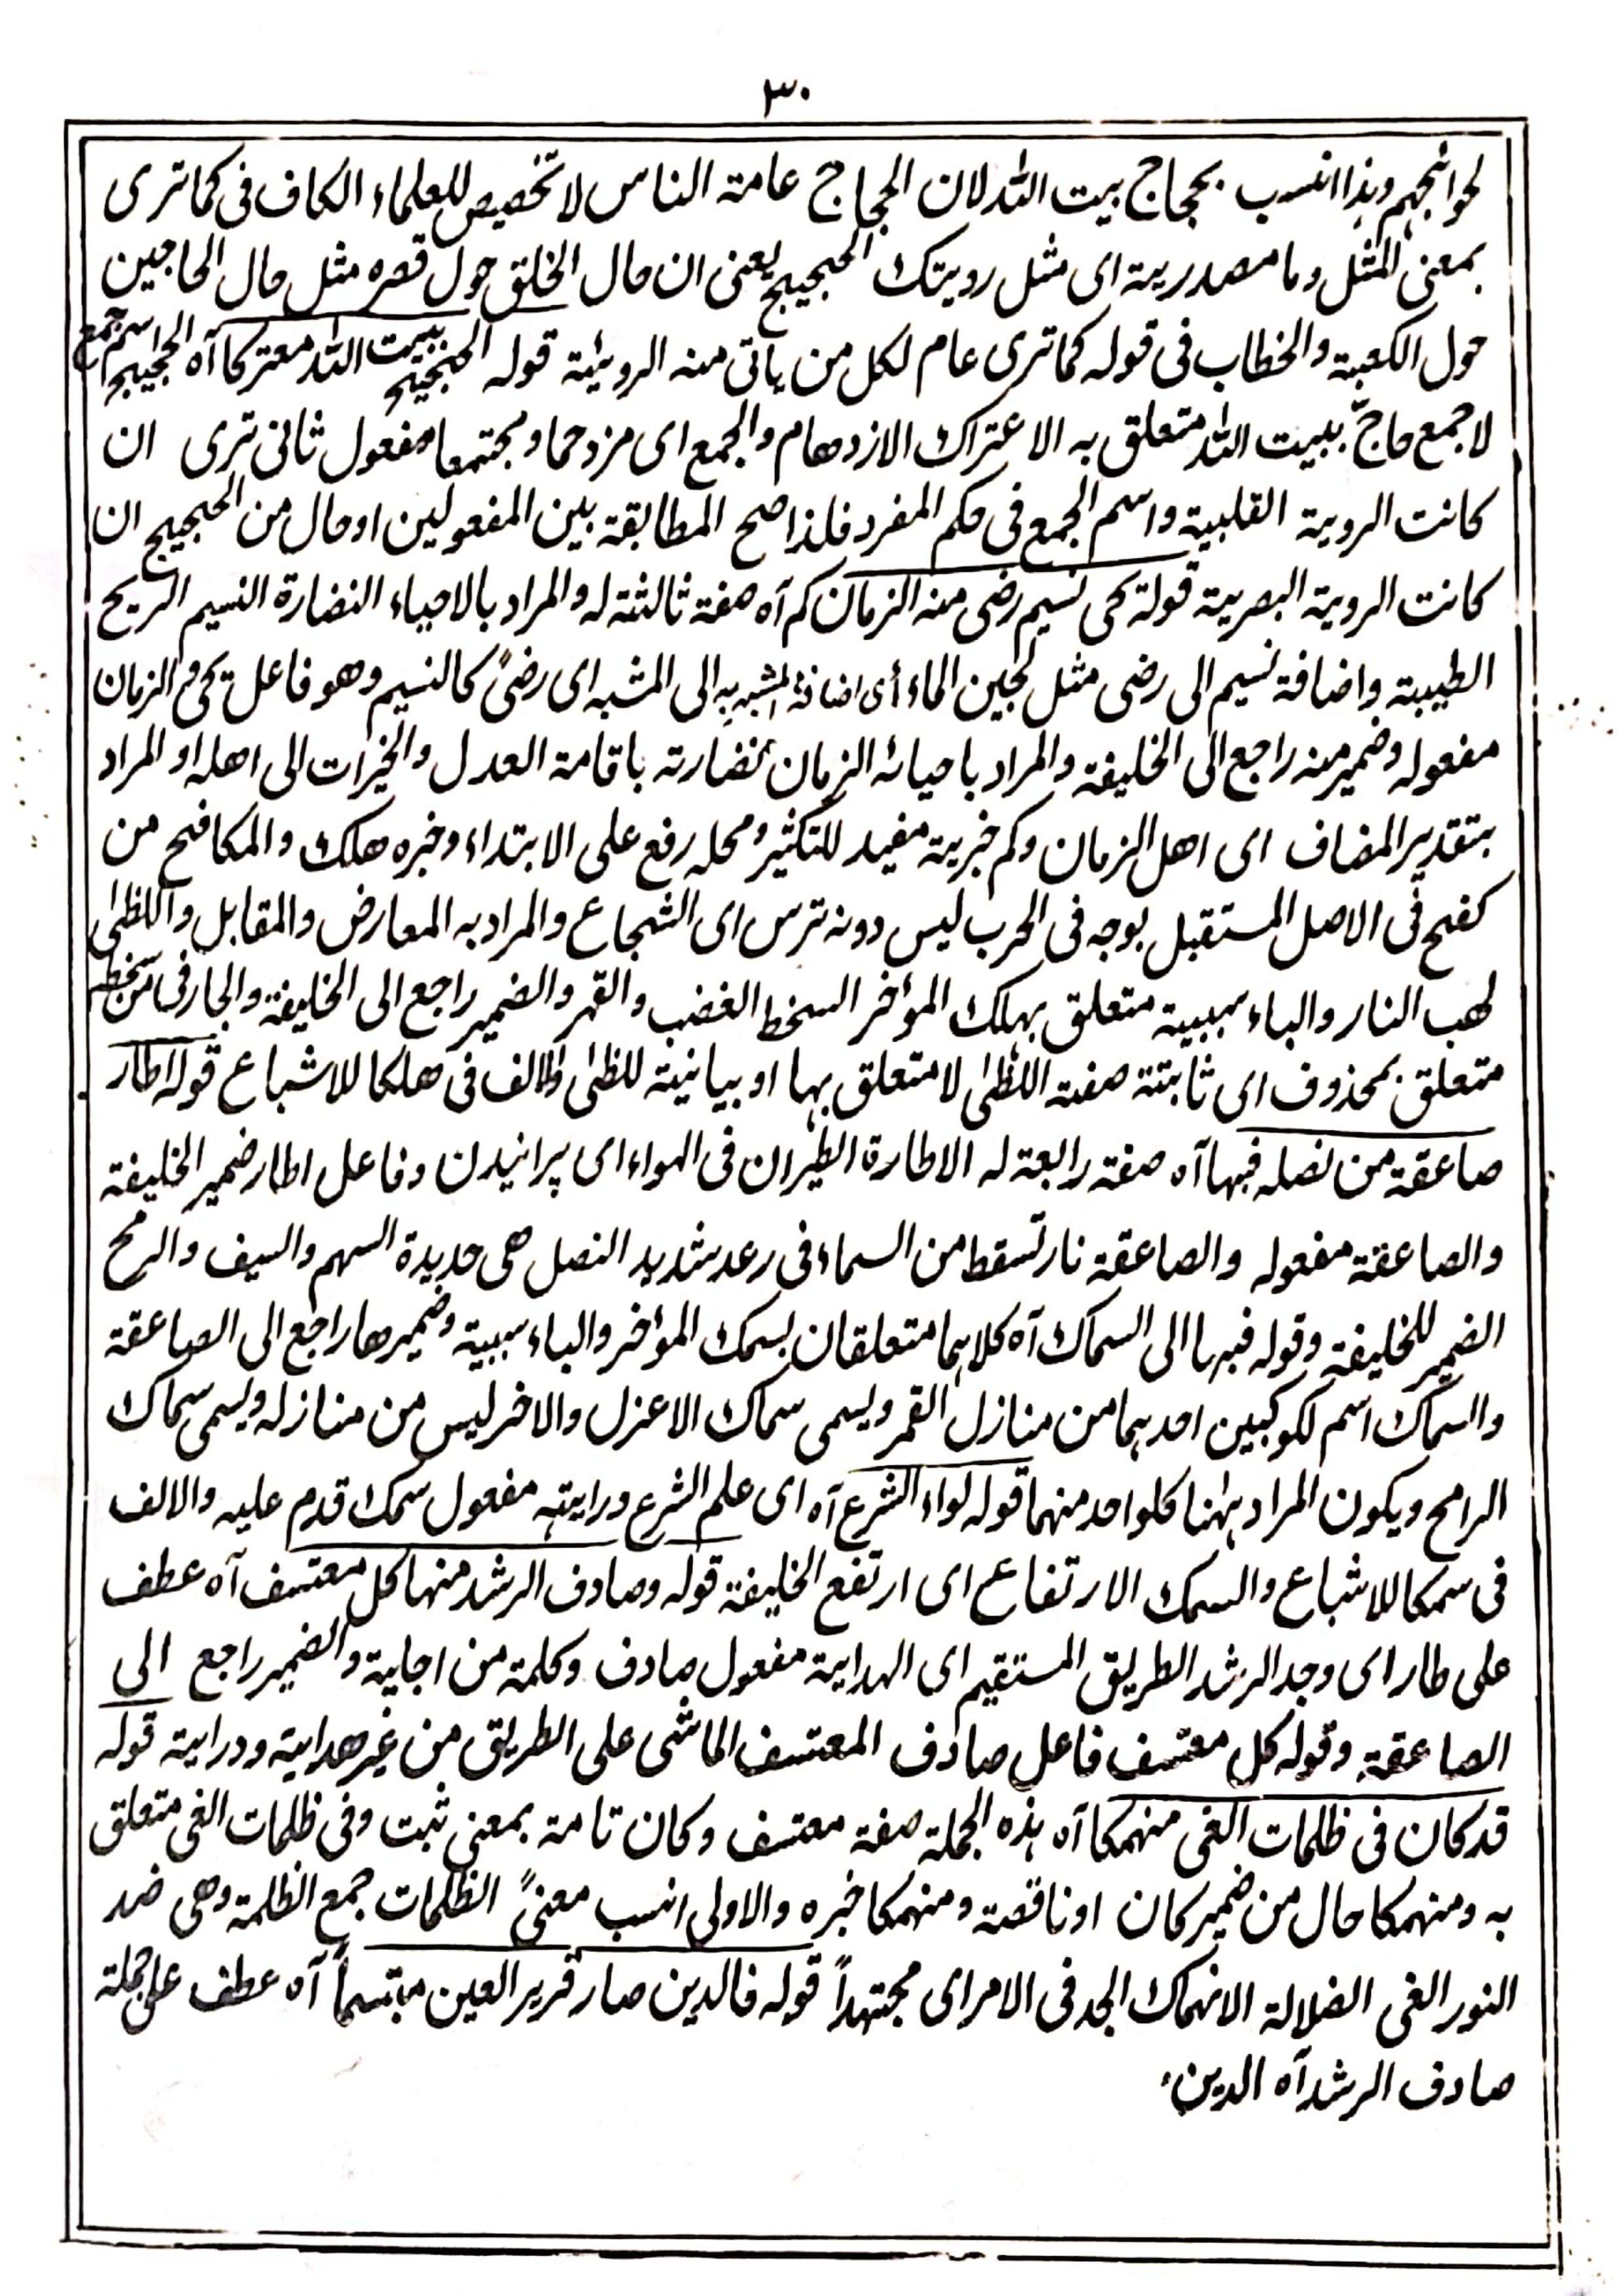 ٣٠
لحوائجهم وہذا انسب بحجاج بیت اللہ لان الحجاج عامۃ الناس لا تخصیص للعلماء الکاف فی کما تری
بمعنی المثل وما مصدریۃ ای مثل رویتک الحجیج یعنی ان حال الخلق حول قصرہ مثل حال الحاجین
حول الکعبۃ والخطاب فی قولہ کما تری عام لکل من یاتی منہ الرویۃ قولہ الحجیج ببیت اللہ معترکا آہ الحجیج اسم جمع
لا جمع حاجّ ببیت اللہ متعلق بہ الاعتراک الازدحام والجمع ای مزدحما ومجتمعا مفعول ثانی تری ان
کانت الرویۃ القلبیۃ واسم الجمع فی حکم المفرد فلذا صح المطابقۃ بین المفعولین او حال من الحجیج ان
کانت الرویۃ البصریۃ قولہ یحی نسیم رضی منہ الزمان کم آہ صفۃ ثالثۃ لہ والمراد بالاحیاء النضارۃ النسیم الریح
الطیبۃ واضافۃ نسیم الی رضی مثل لجین الماء أی اضافۃ المشبہ بہ الی المشبہ ای رضیً کالنسیم وھو فاعل یحی والزمان
مفعولہ وضمیر منہ راجع الی الخلیفۃ والمراد باحیائہ الزمان نضارتہ باقامۃ العدل والخیرات الی اھلہ او المراد
بتقدیر المضاف ای اھل الزمان وکم خبریۃ مفید للتکثیر ومحلہ رفع علی الابتداء وخبرہ ھلک والمکافح من
کفح فی الاصل المستقبل بوجہ فی الحرب لیس دونہ ترس ای الشجاع والمراد بہ المعارض والمقابل واللظٰی
لھب النار والباء سببیۃ متعلق بہلک المؤخر السخط الغضب والقہر والضمیر راجع الی الخلیفۃ والجار فی من سخطہ
متعلق بمحذوف ای ثابتۃ صفۃ اللظٰی لا متعلق بہا او بیانیۃ للظٰی والالف فی ھلکا للاشباع قولہ اطار
صاعقۃ من نصلہ فبہا آہ صفۃ رابعۃ لہ الاطارۃ الطیران فی الہواء ای پرانیدن وفاعل اطار ضمیر الخلیفۃ
والصاعقۃ مفعولہ والصاعقۃ نار تسقط من السماء فی رعد شدید النصل ھی حدیدۃ السہم والسیف والرمح
الضمیر للخلیفۃ وقولہ فبہا الی السماک آہ کلاہما متعلقان بسمک المؤخر والباء سببیۃ وضمیر ھا راجع الی الصاعقۃ
والسماک اسم لکوکبین احدہما من منازل القمر ویسمی سماک الاعزل والاخر لیس من منازلہ ویسمی سماک
الرامح ویکون المراد ہٰہنا کلواحد منہما قولہ لواء الشرع آہ ای علم الشرع ورایتہ مفعول سمک قدم علیہ والالف
فی سمکا للاشباع والسمک الارتفاع ای ارتفع الخلیفۃ قولہ وصادف الرشد منہا کل معتسف آہ عطف
علی طار ای وجد الرشد الطریق المستقیم ای الہدایۃ مفعول صادف وکلمۃ من اجلیۃ والضمیر راجع الی
الصاعقۃ وقولہ کل معتسف فاعل صادف المعتسف الماشی علی الطریق من غیر ھدایۃ ودرایۃ قولہ
قد کان فی ظلمات الغی منہمکا آہ ہذہ الجملۃ صفۃ معتسف وکان تامۃ بمعنی ثبت وفی ظلمات الغی متعلق
بہ ومنہمکا حال من ضمیر کان او ناقصۃ ومنہمکا خبرہ والاولی انسب معنیً الظلمات جمع الظلمۃ وھی ضد
النور الغی الضلالۃ الانہماک الجد فی الامر ای مجتہداً قولہ فالدین صار قریر العین مبتسماً آہ عطف علی جملۃ
صادف الرشد آہ الدین